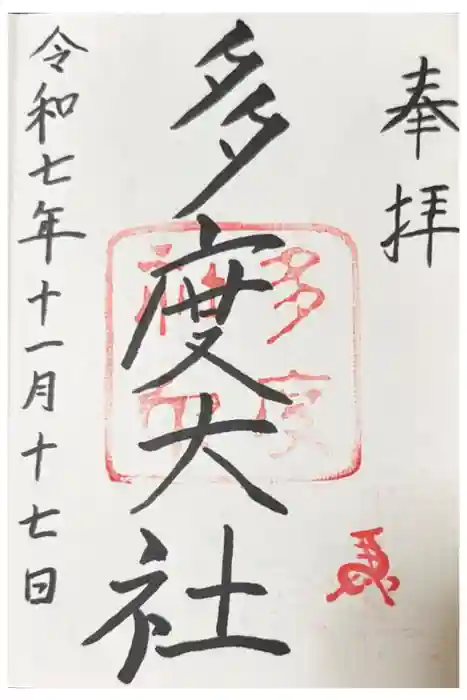 奉拝
多度大社
令和七年十一月十七日
多度